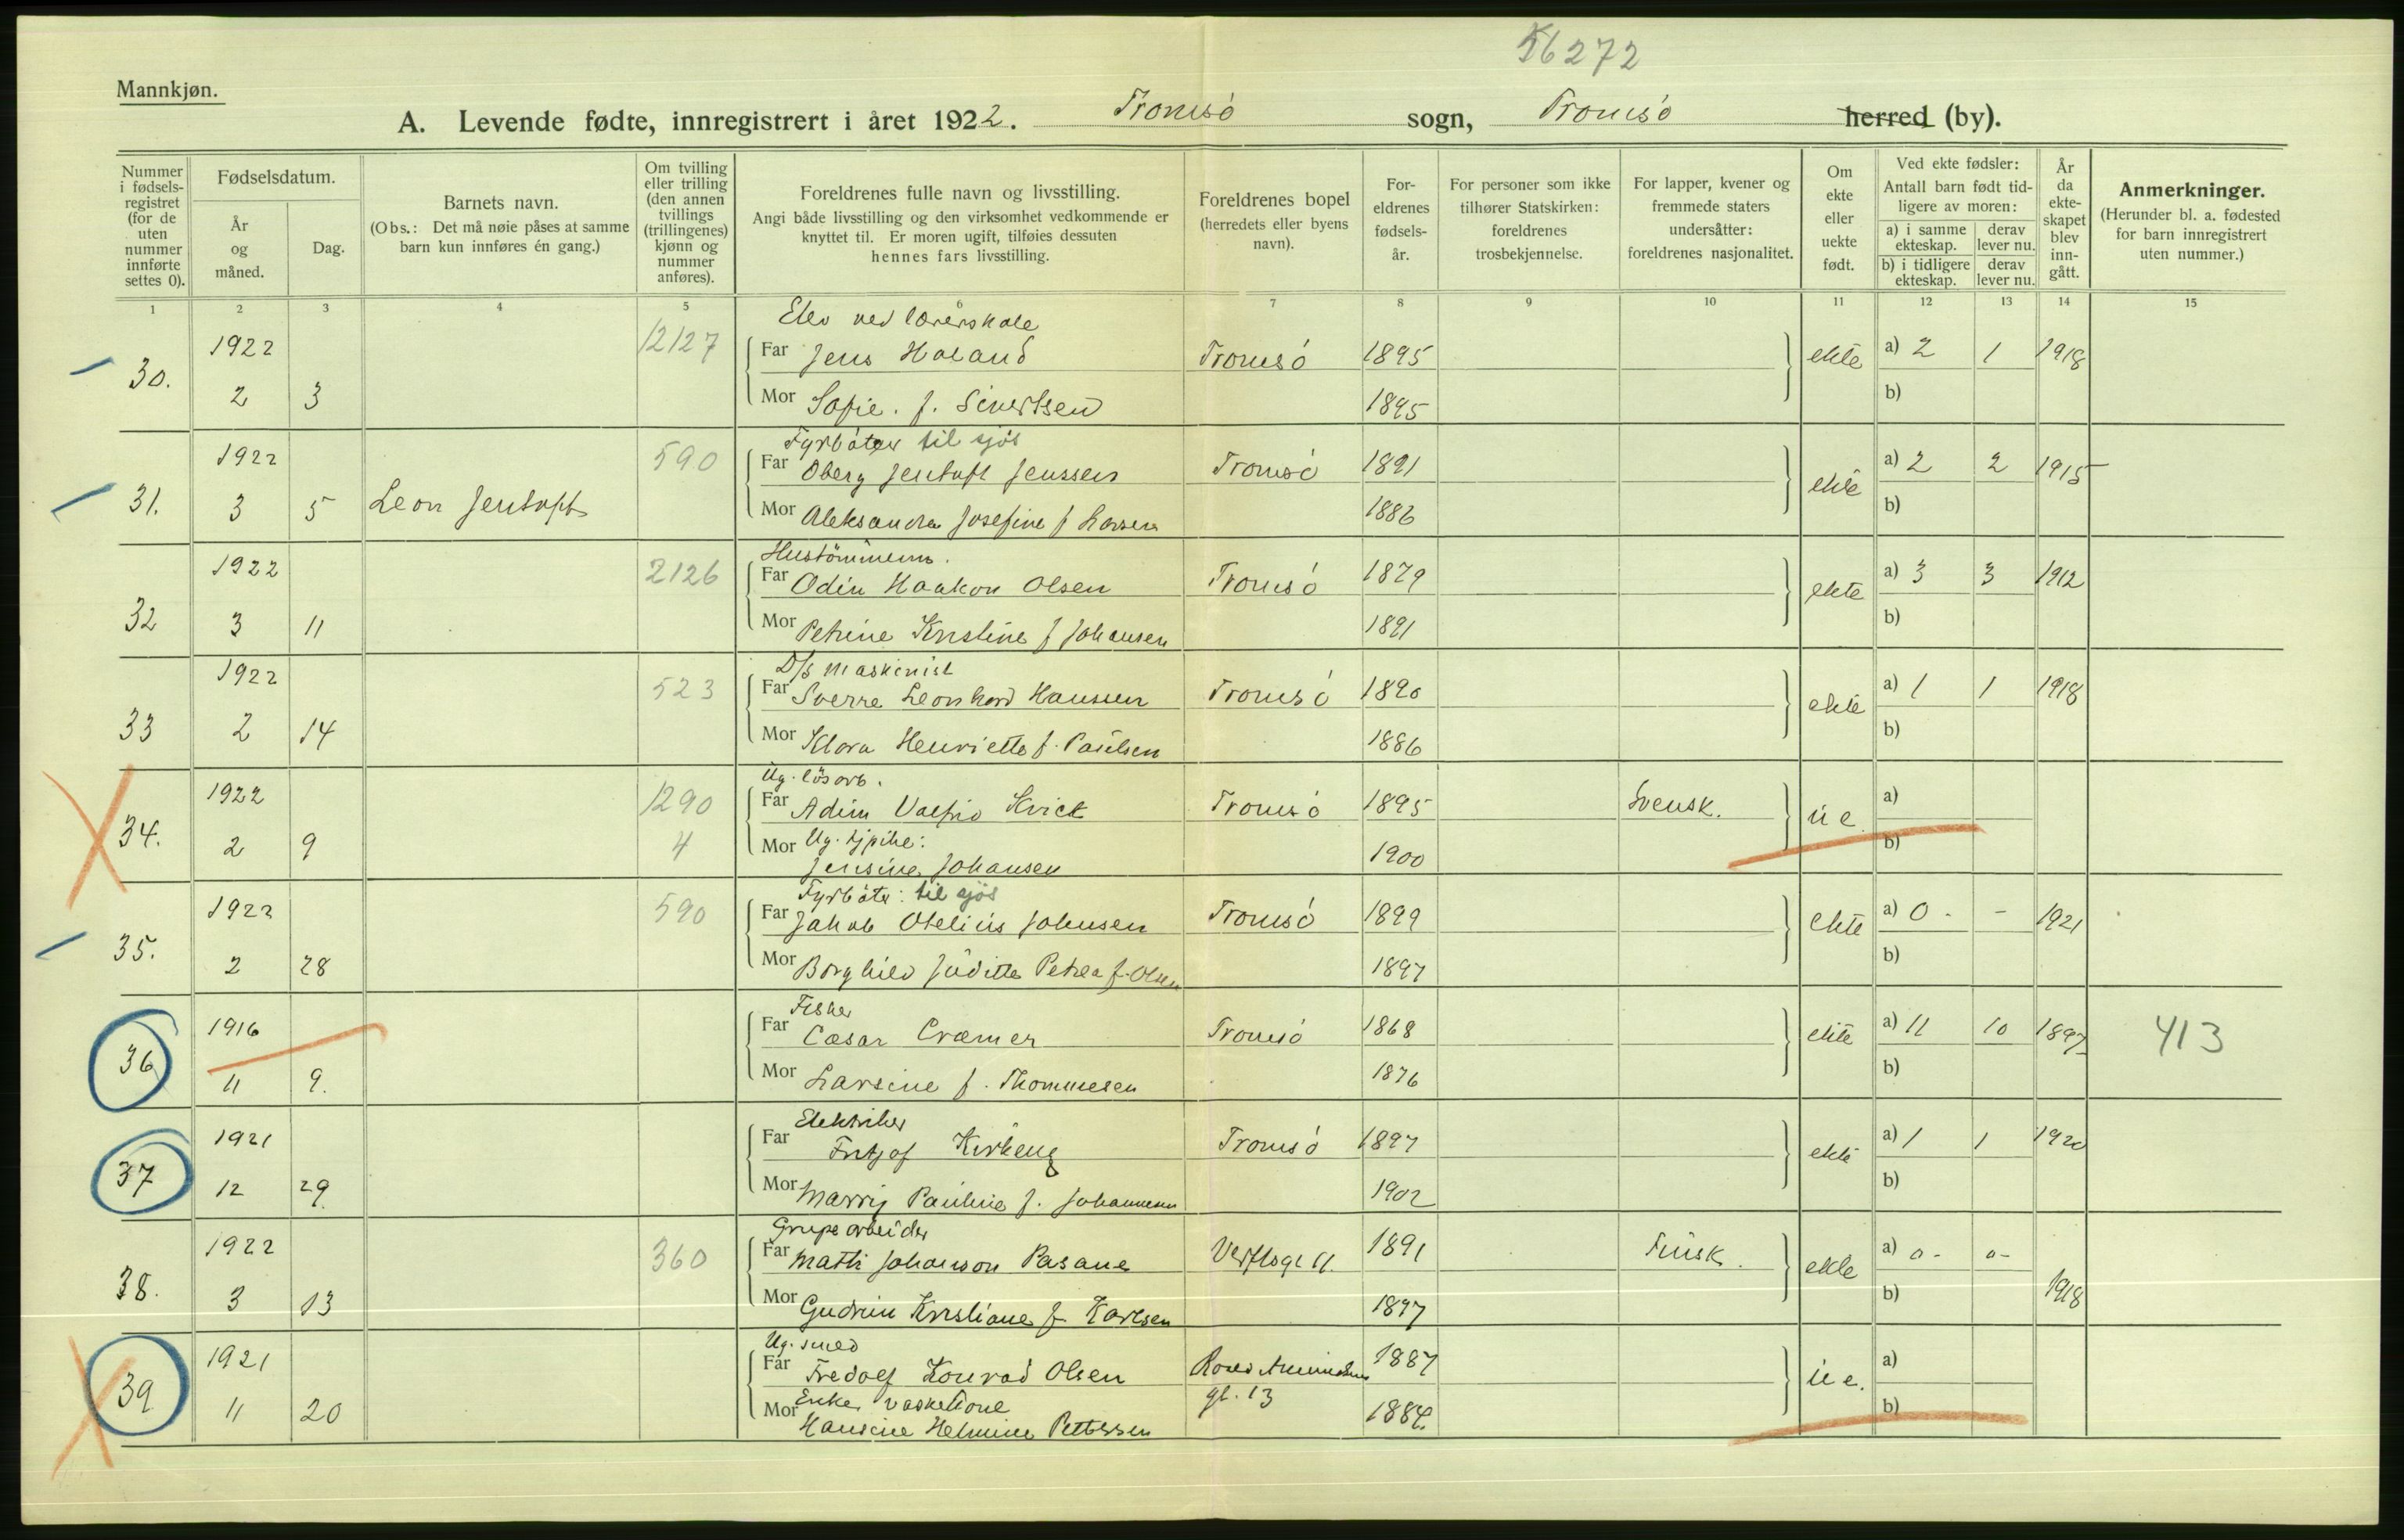 56272
Mannkjøn.
A. Levende fødte, innregistrert i året 1922. Tromsó sogn, Tromsó herred (by).
Nummer i fødsels-registret (for de uten nummer innførte settes 0).
Fødselsdatum.
År og måned.
Dag.
Barnets navn.
(Obs.: Det må nøie påses at samme barn kun innføres én gang.)
Om tvilling eller trilling (den annen tvillings (trillingenes) kjønn og nummer anføres).
Foreldrenes fulle navn og livsstilling.
Angi både livsstilling og den virksomhet vedkommende er knyttet til. Er moren ugift, tilføies dessuten hennes fars livsstilling.
Foreldrenes bopel (herredets eller byens navn).
For-eldrenes fødsels-år.
For personer som ikke tilhører Statskirken: foreldrenes trosbekjennelse.
For lapper, kvener og fremmede staters undersåtter: foreldrenes nasjonalitet.
Om ekte eller uekte født.
Ved ekte fødsler:
Antall barn født tid-ligere av moren:
a) i samme ekteskap. derav lever nu.
b) i tidligere ekteskap. derav lever nu.
År da ekte-skapet blev inn-gått.
Anmerkninger.
(Herunder bl. a. fødested for barn innregistrert uten nummer.)
1 2 3 4 5 6 7 8 9 10 11 12 13 14 15
Elev ved lærerskole
30. 1922 12127 Far Jens Haland Tromsó 1895 ekte a) 2 1 1918
2 3 Mor Sofie. f. Sivertsen 1895 b)
Fyrbóter til sjós
31. 1922 590 Far Oberg Jentoft Jenssen Tromsó 1891 ekte a) 2 2 1915
3 5 Leon Jentoft Mor Aleksandra Josefine f Larsen 1886 b)
Hustömmerm.
32 1922 2126 Far Odin Haakon Olsen Tromsó 1879 ekte a) 3 3 1912
3 11 Mor Petrine Kristine f Johansen 1891 b)
D/s maskinist
33 1922 523 Far Sverre Leonhard Hanssen Tromsó 1890 ekte a) 1 1 1918
2 14 Mor Klara Henriette f. Paulsen 1886 b)
Ug. lösarb.
34. 1922 1290 Far Adim Valfrid Kvick Tromsó 1895 Svensk. u e. a)
2 9 4 Mor Ug. tjpike: Jensine Johansen 1900 b)
Fyrbóter: til sjös
35. 1922 590 Far Jakob Otelius Johnsen Tromsó 1899 ekte a) 0 - - 1921
2 28 Mor Borghild Juditte Petrea f. Olsen 1897 b)
Fisker
36 1916 Far Cæsar Cræmer Tromsó 1868 ekte a) 11 10 1897 413
11 9. Mor Larsine f. Thommesen 1876 b)
Elektriker
37 1921 Far Fritjof Kirkeng Tromsó 1897 ekte a) 1 1 1920
12 29. Mor Marry Pauline f. Johannesen 1902 b)
Grupe arbeider
38. 1922 360 Far Matti Johanson Pasane Verftsgt 11. 1891 Finsk. ekte a) 0 - 0 -
3 13 Mor Gudrun Kristiane f Karlsen 1897 b) 1918
Ug. smed
39 1921 Far Fredolf Konrad Olsen Roald Amundsens 1887 u e. a)
gt. 13
11 20 Mor Enke, vaskekone Hansine Helmine Pettersen 1884. b)